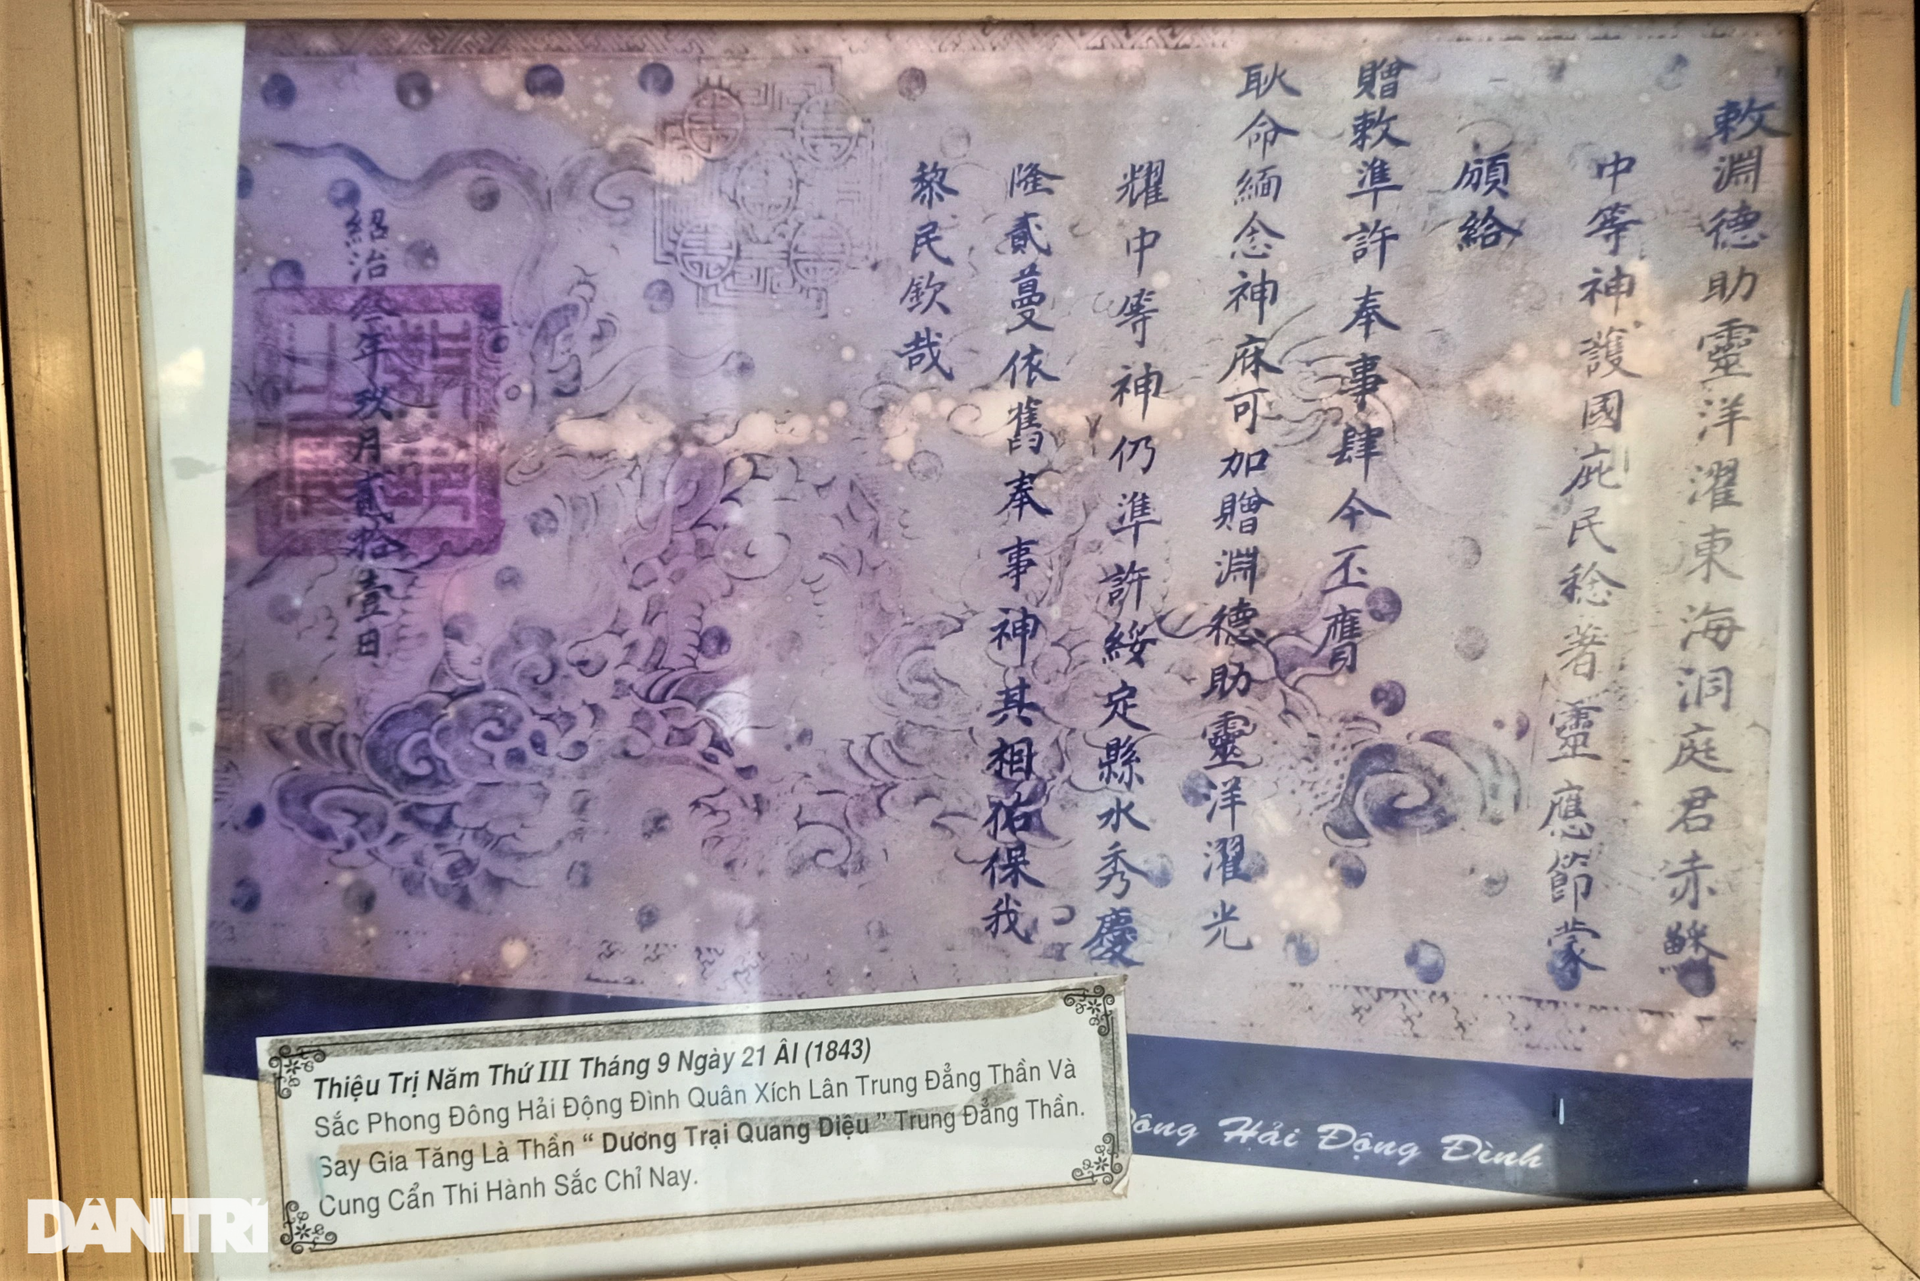 敕淵德助靈洋濯東海洞庭君赤鱗
中等神護國庇民稔著靈應節蒙
頒給
贈敕準許奉事肆今丕膺
耿命緬念神庥可加贈淵德助靈洋濯光
耀中等神仍準許綏定縣水秀慶
隆貳蔓依舊奉事神其相佑保我
黎民欽哉
紹治叁年玖月貳拾壹日
Thiệu Trị Năm Thứ III Tháng 9 Ngày 21 ÂI (1843)
Sắc Phong Đông Hải Động Đình Quân Xích Lân Trung Đẳng Thần Và
Say Gia Tăng Là Thần “ Dương Trại Quang Diệu ” Trung Đẳng Thần.
Cung Cẩn Thi Hành Sắc Chỉ Nay.
Đông Hải Động Đình
DÂN TRÍ